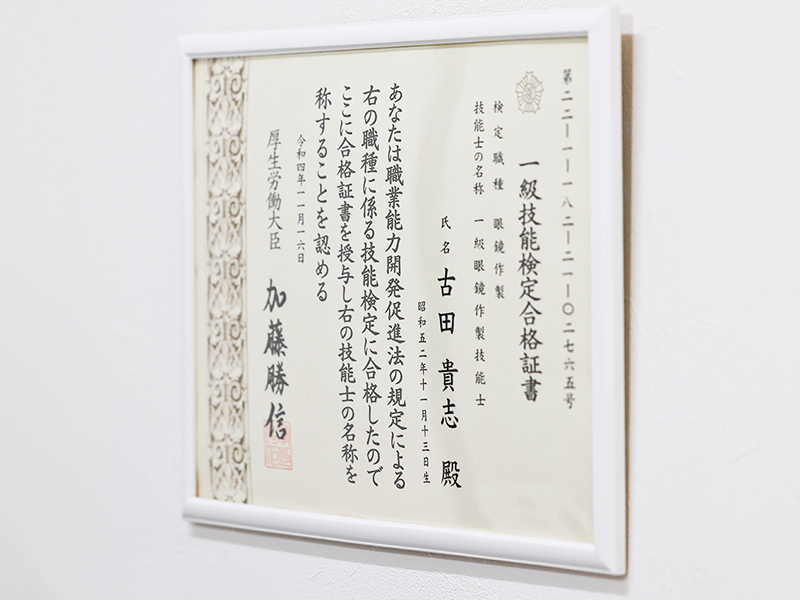 第二二―一―一八二―二一―〇二七六五号
一級技能検定合格証書
検定職種 眼鏡作製
技能士の名称 一級眼鏡作製技能士
氏名 古田 貴志 殿
昭和五二年十一月十三日生
あなたは職業能力開発促進法の規定による
右の職種に係る技能検定に合格したので
ここに合格証書を授与し右の技能士の名称を
称することを認める
令和四年一一月一六日
厚生労働大臣 加藤勝信